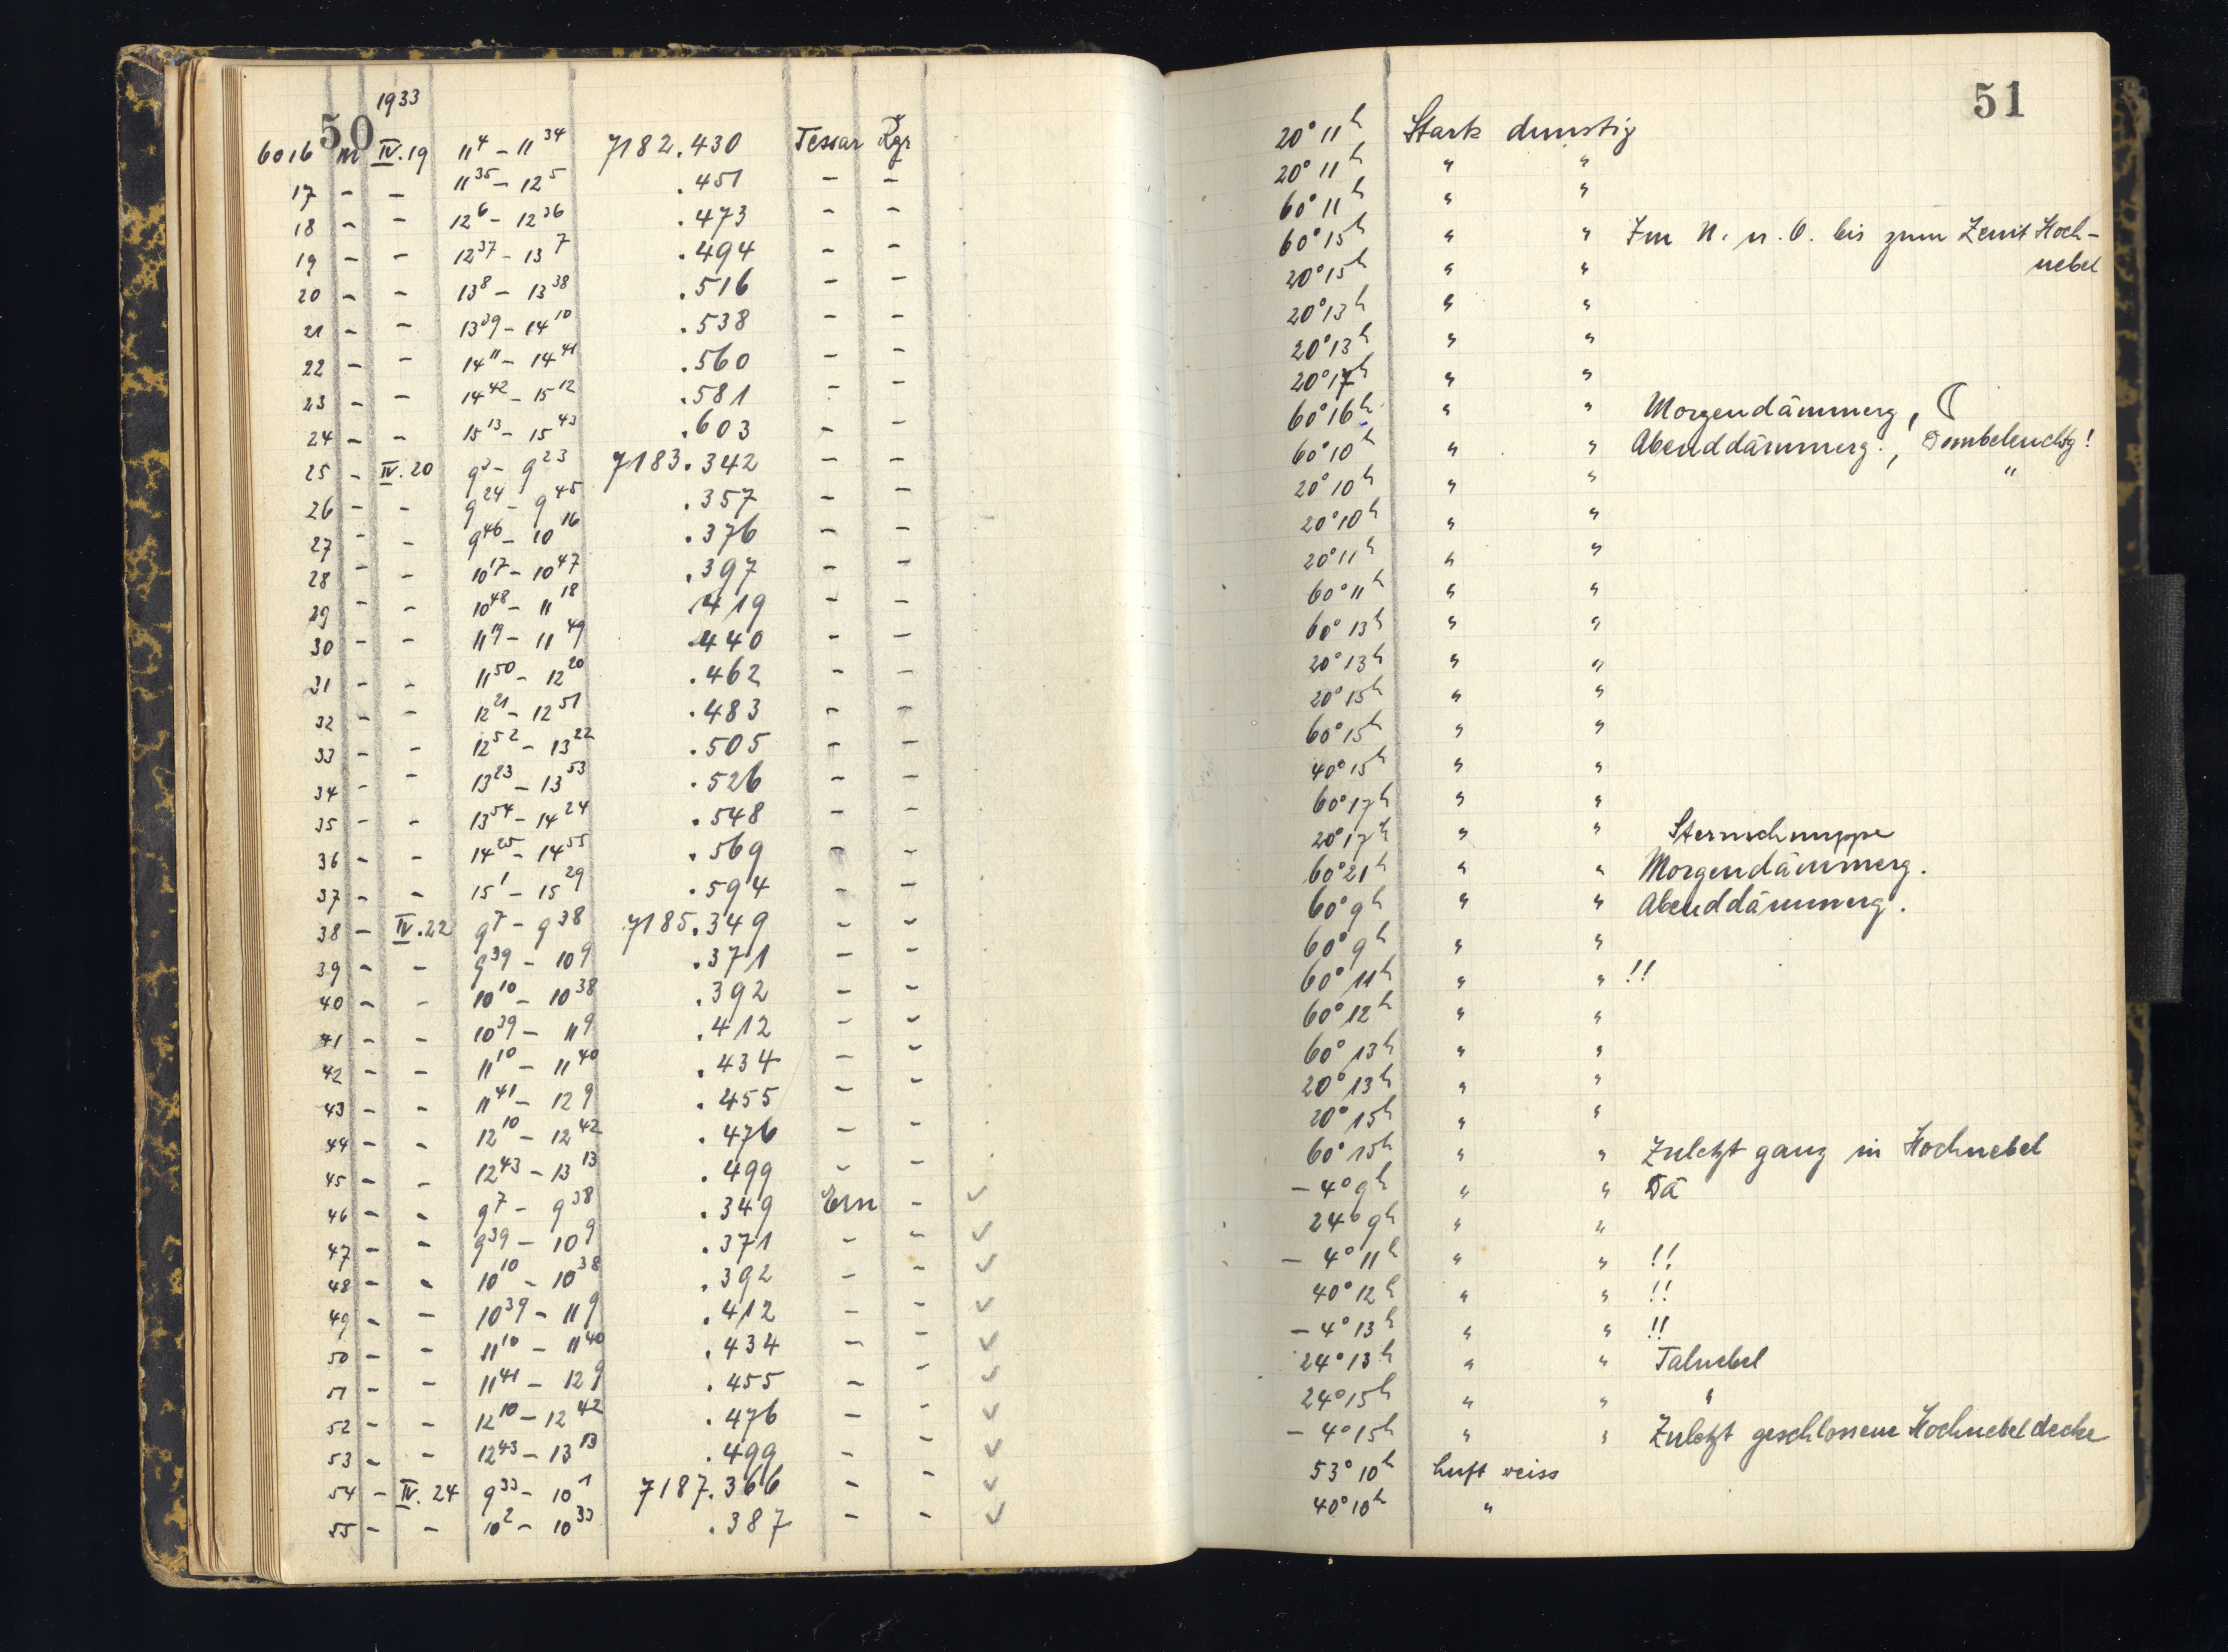 1933
50
6016 m IV.19 11⁴ – 11³⁴ 7182.430 Tessar Kgr
17 – – 11³⁵ – 12⁵ .451 – –
18 – – 12⁶ – 12³⁶ .473 – –
19 – – 12³⁷ – 13⁷ .494 – –
20 – – 13⁸ – 13³⁸ .516 – –
21 – – 13³⁹ – 14¹⁰ .538 – –
22 – – 14¹¹ – 14⁴¹ .560 – –
23 – – 14⁴² – 15¹² .581 – –
24 – – 15¹³ – 15⁴³ .603 – –
25 – IV.20 9³ – 9²³ 7183.342 – –
26 – – 9²⁴ – 9⁴⁵ .357 – –
27 – – 9⁴⁶ – 10¹⁶ .376 – –
28 – – 10¹⁷ – 10⁴⁷ .397 – –
29 – – 10⁴⁸ – 11¹⁸ .419 – –
30 – – 11¹⁹ – 11⁴⁹ .440 – –
31 – – 11⁵⁰ – 12²⁰ .462 – –
32 – – 12²¹ – 12⁵¹ .483 – –
33 – – 12⁵² – 13²² .505 – –
34 – – 13²³ – 13⁵³ .526 – –
35 – – 13⁵⁴ – 14²⁴ .548 – –
36 – – 14²⁵ – 14⁵⁵ .569 – –
37 – – 15¹ – 15²⁹ .594 – –
38 – IV.22 9⁷ – 9³⁸ 7185.349 – –
39 – – 9³⁹ – 10⁹ .371 – –
40 – – 10¹⁰ – 10³⁸ .392 – –
41 – – 10³⁹ – 11⁹ .412 – –
42 – – 11¹⁰ – 11⁴⁰ .434 – –
43 – – 11⁴¹ – 12⁹ .455 – –
44 – – 12¹⁰ – 12⁴² .476 – –
45 – – 12⁴³ – 13¹³ .499 – –
46 – – 9⁷ – 9³⁸ .349 Ern – ✓
47 – – 9³⁹ – 10⁹ .371 – – ✓
48 – – 10¹⁰ – 10³⁸ .392 – – ✓
49 – – 10³⁹ – 11⁹ .412 – – ✓
50 – – 11¹⁰ – 11⁴⁰ .434 – – ✓
51 – – 11⁴¹ – 12⁹ .455 – – ✓
52 – – 12¹⁰ – 12⁴² .476 – – ✓
53 – – 12⁴³ – 13¹³ .499 – – ✓
54 – IV.24 9³³ – 10¹ 7187.366 – – ✓
55 – – 10² – 10³³ .387 – – ✓
51
20° 11ʰ Stark dunstig
20° 11ʰ " "
60° 11ʰ " "
60° 15ʰ " " Im N. u. O. bis zum Zenit Hoch-
nebel
20° 15ʰ " "
20° 13ʰ " "
20° 13ʰ " "
20° 17ʰ " "
60° 16ʰ " " Morgendämmerg, ☾
60° 10ʰ " " Abenddämmerg., Dombeleuchtg!
20° 10ʰ " " "
20° 10ʰ " "
20° 11ʰ " "
60° 11ʰ " "
60° 13ʰ " "
20° 13ʰ " "
20° 15ʰ " "
60° 15ʰ " "
40° 15ʰ " "
60° 17ʰ " "
20° 17ʰ " " Sternschnuppe
60° 21ʰ " " Morgendämmerg.
60° 9ʰ " " Abenddämmerg.
60° 9ʰ " "
60° 11ʰ " " !!
60° 12ʰ " "
60° 13ʰ " "
20° 13ʰ " "
20° 15ʰ " "
60° 15ʰ " " Zuletzt ganz in Hochnebel
– 4° 9ʰ " " Dä
24° 9ʰ " "
– 4° 11ʰ " " !!
40° 12ʰ " " !!
– 4° 13ʰ " " !!
24° 13ʰ " " Talnebel
24° 15ʰ " " "
– 4° 15ʰ " " Zuletzt geschlossene Hochnebeldecke
53° 10ʰ Luft weiss
40° 10ʰ "